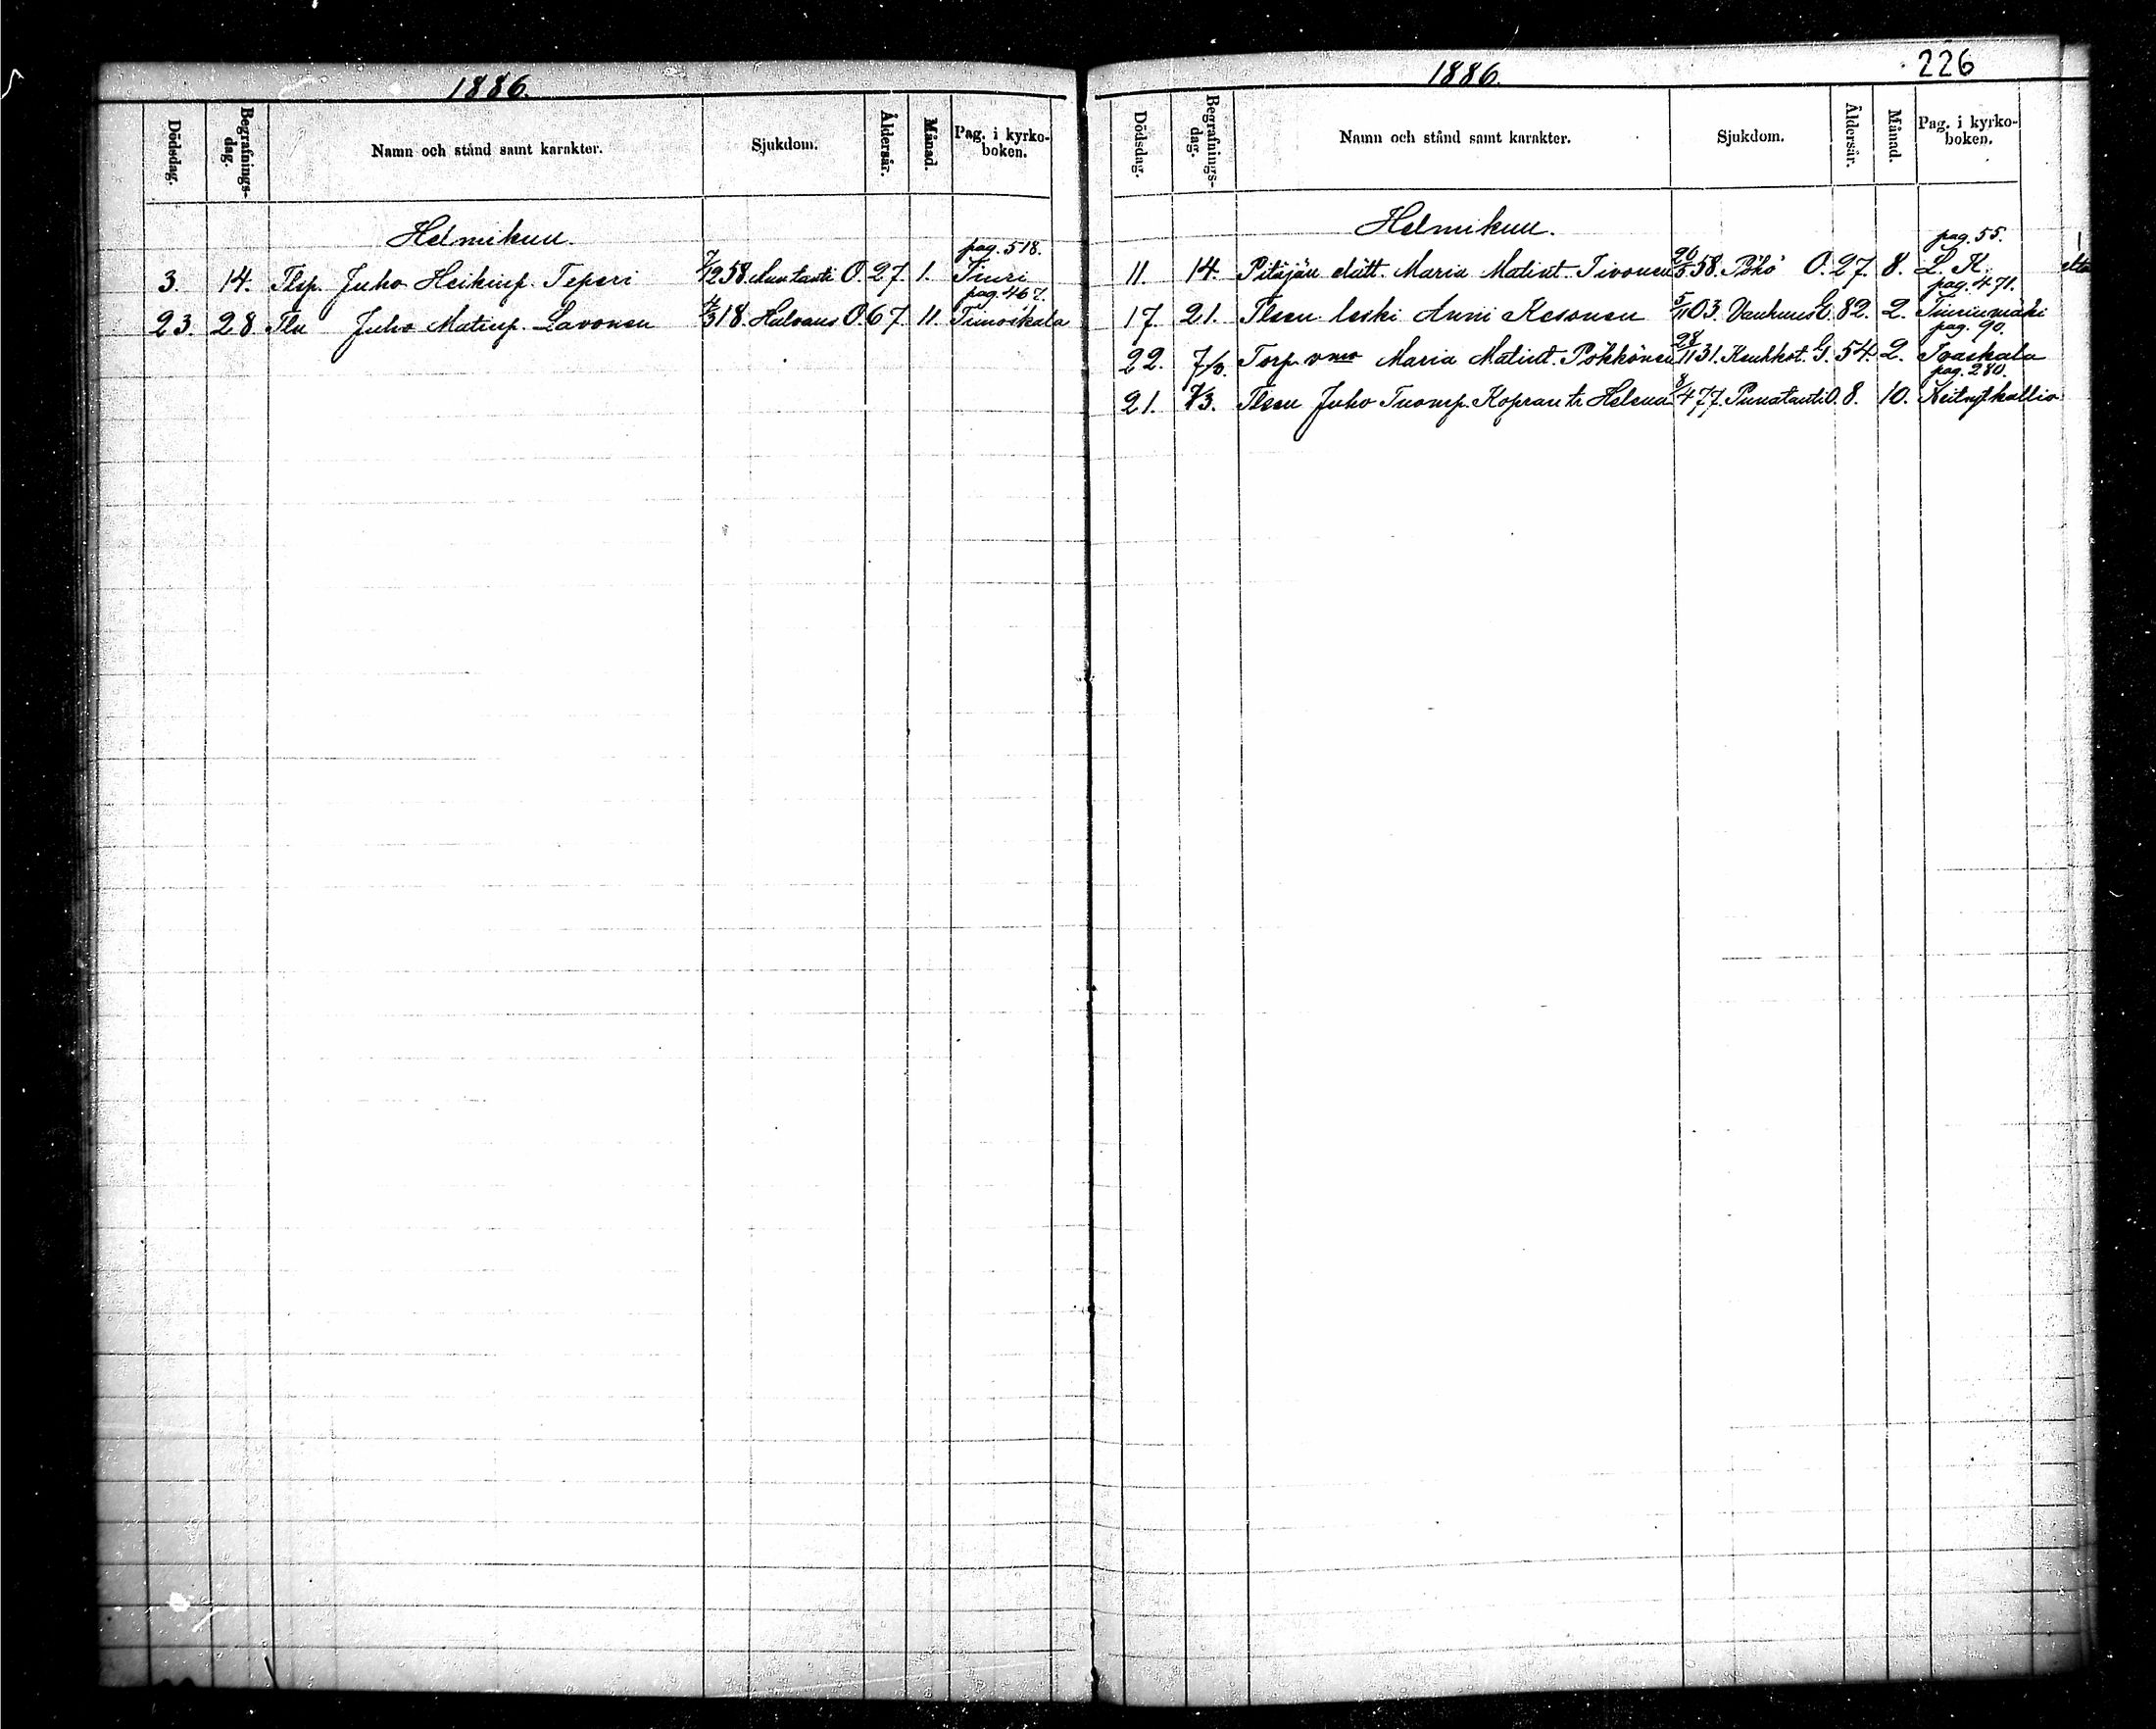 1886.
Dödsdag. Begrafnings-dag. Namn och stånd samt karakter. Sjukdom. Åldersår. Månad. Pag. i kyrko-boken.
Helmikuu.
pag. 518.
3. 14. Tlsp. Juho Heikinp. Teperi 7/12 58. O. 27. 1. Tiuri
pag. 467.
23. 28 Tln Juho Matinp. Lavonen 4/3 18. Halvaus O. 67. 11. Timoskala
1886.
226
Dödsdag. Begrafnings-dag. Namn och stånd samt karakter. Sjukdom. Åldersår. Månad. Pag. i kyrko-boken.
Helmikuu.
pag. 55.
11. 14. Pitäjän elätt. Maria Matint. Tivonen 26/5 58. Pöhö O. 27. 8. L. K.
pag. 471.
17. 21. Tlsen leski Anni Kesonen 5/11 03. Vanhuus 82. 2.
pag. 90.
22. 7/3. Torp. vmo Maria Matint. Pökkönen 28/11 31. Keuhkot. G. 54. 2. Ivaskala
pag. 280.
21. 7/3. Tlsen Juho Tuomp. Kopran tr Helena 8/4 77. Punatauti O. 8. 10.